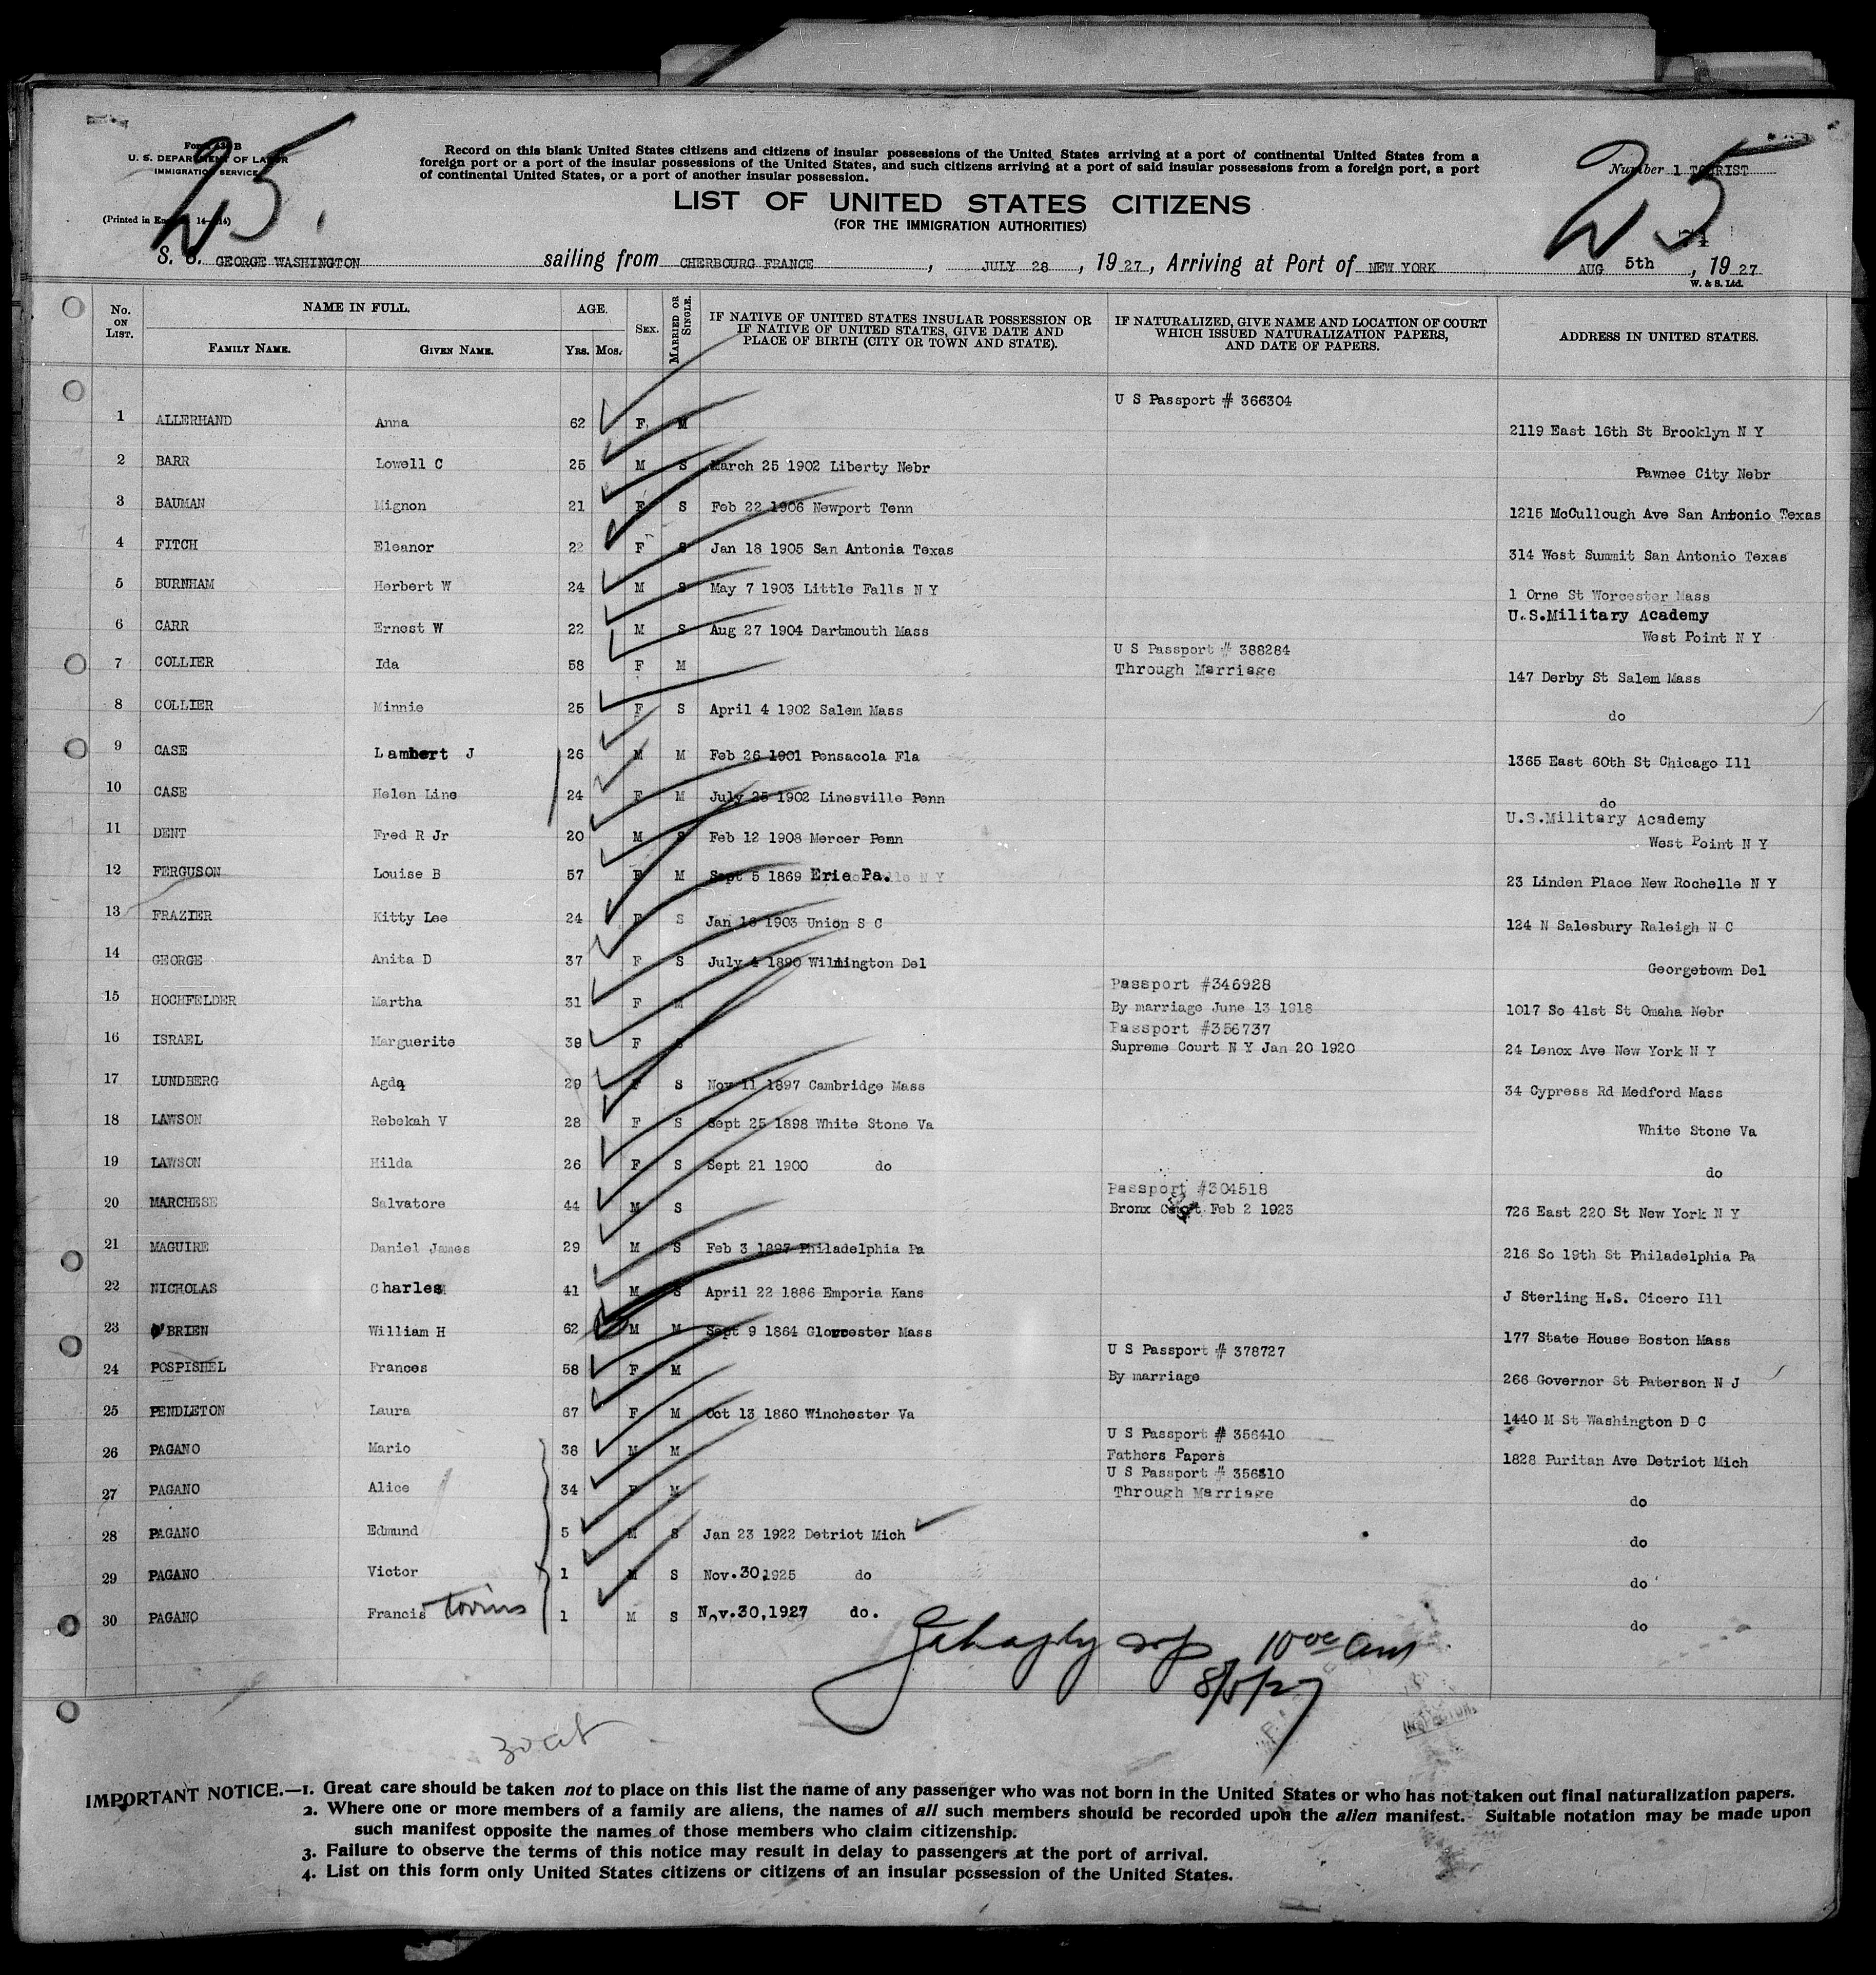 Form 630 B
U. S. DEPARTMENT OF LABOR
IMMIGRATION SERVICE
25.
Record on this blank United States citizens and citizens of insular possessions of the United States arriving at a port of continental United States from a
foreign port or a port of the insular possessions of the United States, and such citizens arriving at a port of said insular possessions from a foreign port, a port
of continental United States, or a port of another insular possession.
Number 1 TOURIST
25
LIST OF UNITED STATES CITIZENS
(FOR THE IMMIGRATION AUTHORITIES)
S. S. GEORGE WASHINGTON sailing from CHERBOURG FRANCE , JULY 28 , 1927, Arriving at Port of NEW YORK AUG 5th , 1927
W. & S. Ltd.
No. ON LIST. NAME IN FULL. FAMILY NAME. GIVEN NAME. AGE. YRS. MOS. SEX. MARRIED OR SINGLE.
IF NATIVE OF UNITED STATES INSULAR POSSESSION OR
IF NATIVE OF UNITED STATES, GIVE DATE AND
PLACE OF BIRTH (CITY OR TOWN AND STATE).
IF NATURALIZED, GIVE NAME AND LOCATION OF COURT
WHICH ISSUED NATURALIZATION PAPERS,
AND DATE OF PAPERS.
ADDRESS IN UNITED STATES.
U S Passport # 366304
1 ALLERHAND Anna 62 F M 2119 East 16th St Brooklyn N Y
2 BARR Lowell C 25 M S March 25 1902 Liberty Nebr Pawnee City Nebr
3 BAUMAN Mignon 21 F S Feb 22 1906 Newport Tenn 1215 McCullough Ave San Antonio Texas
4 FITCH Eleanor 22 F S Jan 18 1905 San Antonia Texas 314 West Summit San Antonio Texas
5 BURNHAM Herbert W 24 M S May 7 1903 Little Falls N Y 1 Orne St Worcester Mass
U.S.Military Academy
6 CARR Ernest W 22 M S Aug 27 1904 Dartmouth Mass West Point N Y
U S Passport # 388284
7 COLLIER Ida 58 F M Through Marriage 147 Derby St Salem Mass
8 COLLIER Minnie 25 F S April 4 1902 Salem Mass do
9 CASE Lambert J 26 M M Feb 26 1901 Pensacola Fla 1365 East 60th St Chicago Ill
10 CASE Helen Line 24 F M July 25 1902 Linesville Penn do
U.S.Military Academy
11 DENT Fred R Jr 20 M S Feb 12 1908 Mercer Penn West Point N Y
12 FERGUSON Louise B 57 F M Sept 5 1869 Erie Pa. 23 Linden Place New Rochelle N Y
13 FRAZIER Kitty Lee 24 F S Jan 16 1903 Union S C 124 N Salesbury Raleigh N C
14 GEORGE Anita D 37 F S July 4 1890 Wilmington Del Georgetown Del
Passport #346928
15 HOCHFELDER Martha 31 F M By marriage June 13 1918 1017 So 41st St Omaha Nebr
Passport #356737
16 ISRAEL Marguerite 38 F S Supreme Court N Y Jan 20 1920 24 Lenox Ave New York N Y
17 LUNDBERG Agda 29 F S Nov 11 1897 Cambridge Mass 34 Cypress Rd Medford Mass
18 LAWSON Rebekah V 28 F S Sept 25 1898 White Stone Va White Stone Va
19 LAWSON Hilda 26 F S Sept 21 1900 do do
Passport #304518
20 MARCHESE Salvatore 44 M S Bronx Court Feb 2 1923 726 East 220 St New York N Y
21 MAGUIRE Daniel James 29 M S Feb 3 1897 Philadelphia Pa 216 So 19th St Philadelphia Pa
22 NICHOLAS Charles 41 M S April 22 1886 Emporia Kans J Sterling H.S. Cicero Ill
23 O'BRIEN William H 62 M M Sept 9 1864 Gloucester Mass 177 State House Boston Mass
U S Passport # 378727
24 POSPISHEL Frances 58 F M By marriage 266 Governor St Paterson N J
25 PENDLETON Laura 67 F M Oct 13 1860 Winchester Va 1440 M St Washington D C
U S Passport # 356410
26 PAGANO Mario 38 M M Fathers Papers 1828 Puritan Ave Detriot Mich
U S Passport # 356310
27 PAGANO Alice 34 F M Through Marriage do
28 PAGANO Edmund 5 M S Jan 23 1922 Detriot Mich do
29 PAGANO Victor 1 M S Nov.30,1925 do do
30 PAGANO Francis twins 1 M S Nov.30,1927 do. do
10 00 am
8/5/27
INSPECTOR
IMPORTANT NOTICE.—1. Great care should be taken not to place on this list the name of any passenger who was not born in the United States or who has not taken out final naturalization papers.
2. Where one or more members of a family are aliens, the names of all such members should be recorded upon the alien manifest. Suitable notation may be made upon
such manifest opposite the names of those members who claim citizenship.
3. Failure to observe the terms of this notice may result in delay to passengers at the port of arrival.
4. List on this form only United States citizens or citizens of an insular possession of the United States.